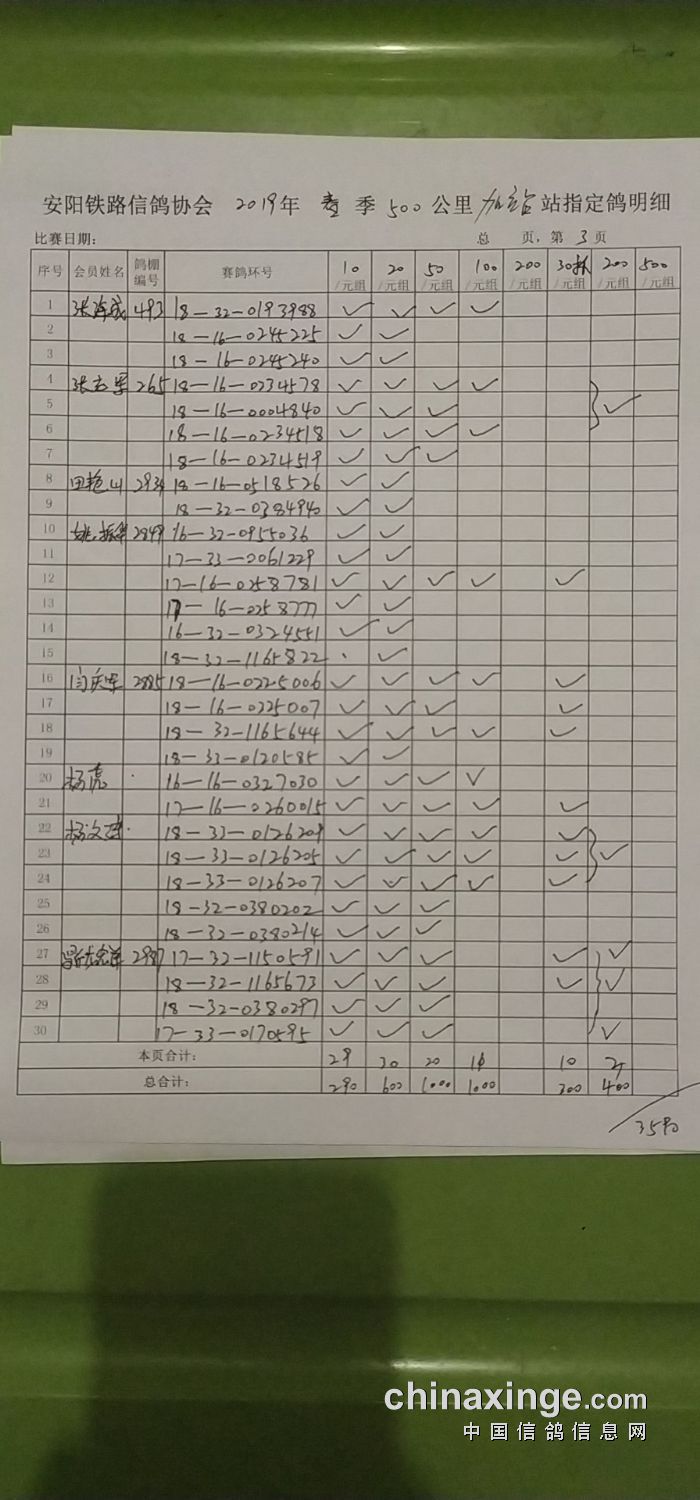 安阳铁路信鸽协会 2019年 春 季 500 公里 加站 站指定鸽明细
比赛日期: 总 页, 第 3 页
序号 会员姓名 鸽棚编号 赛鸽环号 10/元组 20/元组 50/元组 100/元组 200/元组 30/元组 200/元组 500/元组
1 张海成 493 18-32-0193988 ✓ ✓ ✓ ✓
2 18-16-0245225 ✓ ✓
3 18-16-0245240 ✓ ✓
4 张志军 265 18-16-0234578 ✓ ✓ ✓ ✓
5 18-16-0004840 ✓ ✓ ✓ ✓
6 18-16-0234518 ✓ ✓ ✓ ✓
7 18-16-0234519 ✓ ✓ ✓
8 田艳山 2934 18-16-0518526 ✓ ✓
9 18-32-0384940 ✓ ✓
10 姚振华 2849 16-32-0955036 ✓ ✓
11 17-33-0061229 ✓ ✓
12 17-16-0258781 ✓ ✓ ✓ ✓ ✓
13 17-16-0258777 ✓ ✓
14 16-32-0324551 ✓ ✓
15 18-32-1165822 · ✓
16 闫庆军 2885 18-16-0225006 ✓ ✓ ✓ ✓ ✓
17 18-16-0225007 ✓ ✓ ✓ ✓
18 18-32-1165644 ✓ ✓ ✓ ✓ ✓
19 18-33-0120585 ✓ ✓
20 杨虎 · 16-16-0327030 ✓ ✓ ✓ ✓
21 17-16-0260015 ✓ ✓ ✓ ✓ ✓
22 杨文 · 18-33-0126209 ✓ ✓ ✓ ✓ ✓
23 18-33-0126205 ✓ ✓ ✓ ✓ ✓ ✓
24 18-33-0126207 ✓ ✓ ✓ ✓ ✓
25 18-32-0380202 ✓ ✓ ✓
26 18-32-0380214 ✓ ✓ ✓
27 2987 17-32-1150591 ✓ ✓ ✓ ✓ ✓
28 18-32-1165673 ✓ ✓ ✓ ✓ ✓
29 18-32-0380297 ✓ ✓ ✓
30 17-33-0170595 ✓ ✓ ✓ ✓
本页合计: 29 30 20 10 10
总合计: 290 600 1000 1000 300 400
3590
chinaxinge.com
中国信鸽信息网